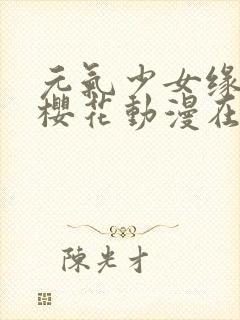 元氣少女缘
櫻花動漫在
陳光才